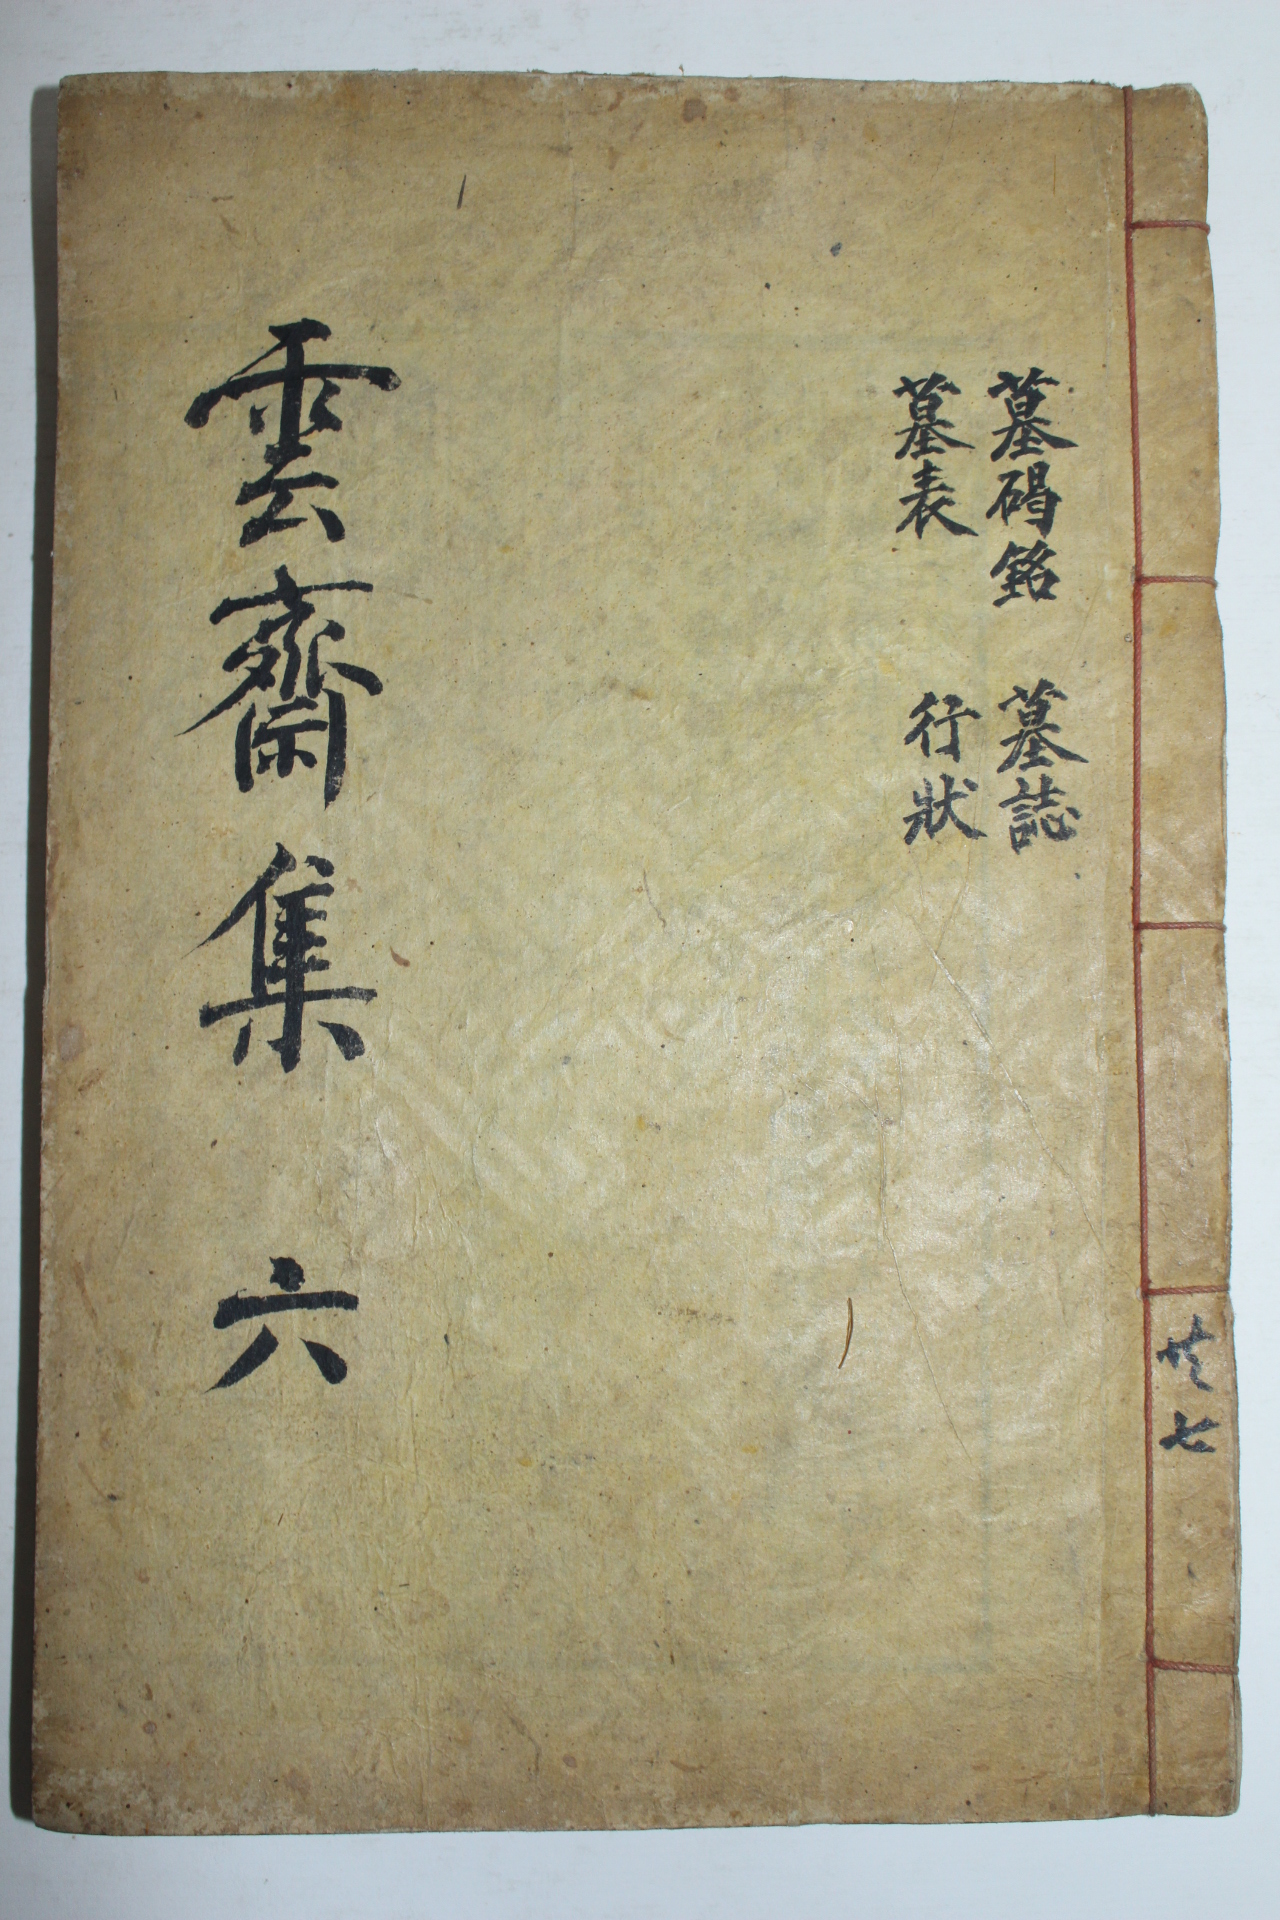 墓碣銘 墓誌
墓表 行狀
雲齋集 六
共七